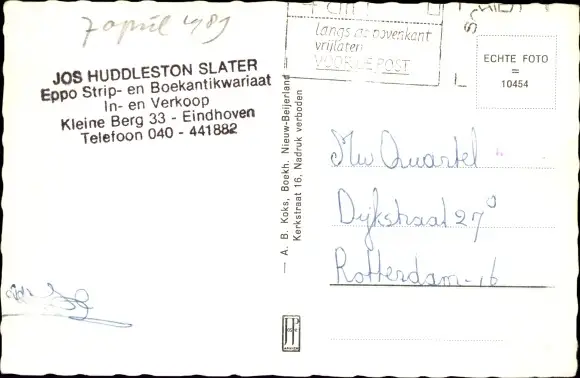 7 april 1989
JOS HUDDLESTON SLATER
Eppo Strip- en Boekantikwariaat
In- en Verkoop
Kleine Berg 33 - Eindhoven
Telefoon 040 - 441882
4 cm
langs de bovenkant
vrijlaten
VOOR DE POST
ECHTE FOTO
=
10454
— A. B. Koks, Boekh. Nieuw-Beijerland —
Kerkstraat 16, Nadruk verboden
Mw Quartel
Dijkstraat 27
Rotterdam-16